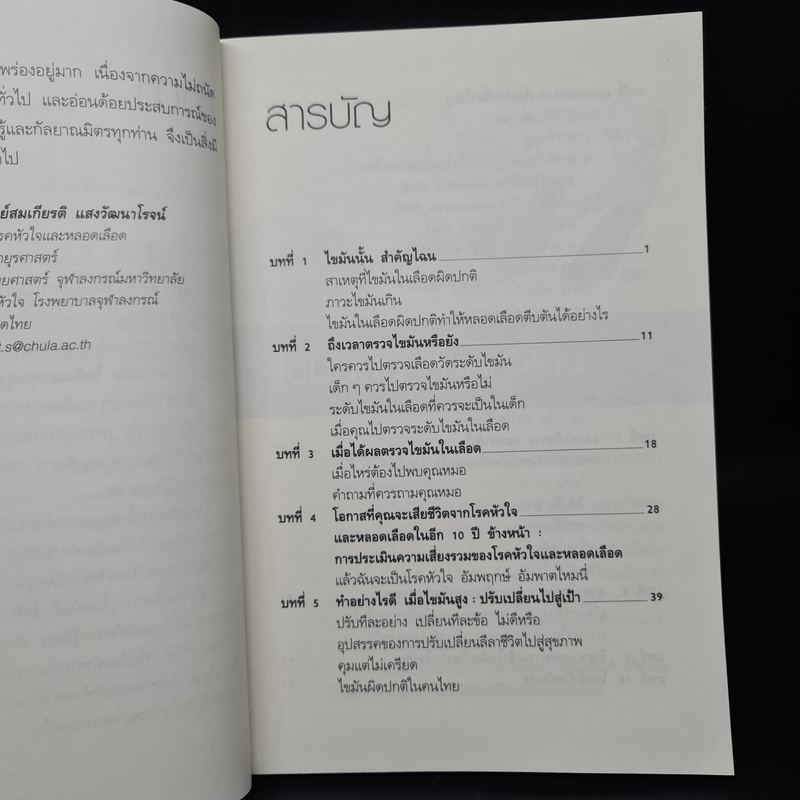 พร่องอยู่มาก เนื่องจากความไม่ถนัด
ทั่วไป และอ่อนด้อยประสบการณ์ของ
รู้และกัลยาณมิตรทุกท่าน จึงเป็นสิ่งมี
ไป
ย์สมเกียรติ แสงวัฒนาโรจน์
รคหัวใจและหลอดเลือด
ายุรศาสตร์
ยศาสตร์ จุฬาลงกรณ์มหาวิทยาลัย
หัวใจ โรงพยาบาลจุฬาลงกรณ์
ดไทย
t.s@chula.ac.th
สารบัญ
บทที่ 1 ไขมันนั้น สำคัญไฉน 1
สาเหตุที่ไขมันในเลือดผิดปกติ
ภาวะไขมันเกิน
ไขมันในเลือดผิดปกติทำให้หลอดเลือดตีบตันได้อย่างไร
บทที่ 2 ถึงเวลาตรวจไขมันหรือยัง 11
ใครควรไปตรวจเลือดวัดระดับไขมัน
เด็ก ๆ ควรไปตรวจไขมันหรือไม่
ระดับไขมันในเลือดที่ควรจะเป็นในเด็ก
เมื่อคุณไปตรวจระดับไขมันในเลือด
บทที่ 3 เมื่อได้ผลตรวจไขมันในเลือด 18
เมื่อไหร่ต้องไปพบคุณหมอ
คำถามที่ควรถามคุณหมอ
บทที่ 4 โอกาสที่คุณจะเสียชีวิตจากโรคหัวใจ 28
และหลอดเลือดในอีก 10 ปี ข้างหน้า :
การประเมินความเสี่ยงรวมของโรคหัวใจและหลอดเลือด
แล้วฉันจะเป็นโรคหัวใจ อัมพฤกษ์ อัมพาตไหมนี่
บทที่ 5 ทำอย่างไรดี เมื่อไขมันสูง : ปรับเปลี่ยนไปสู่เป้า 39
ปรับทีละอย่าง เปลี่ยนทีละข้อ ไม่ดีหรือ
อุปสรรคของการปรับเปลี่ยนลีลาชีวิตไปสู่สุขภาพ
คุมแต่ไม่เครียด
ไขมันผิดปกติในคนไทย